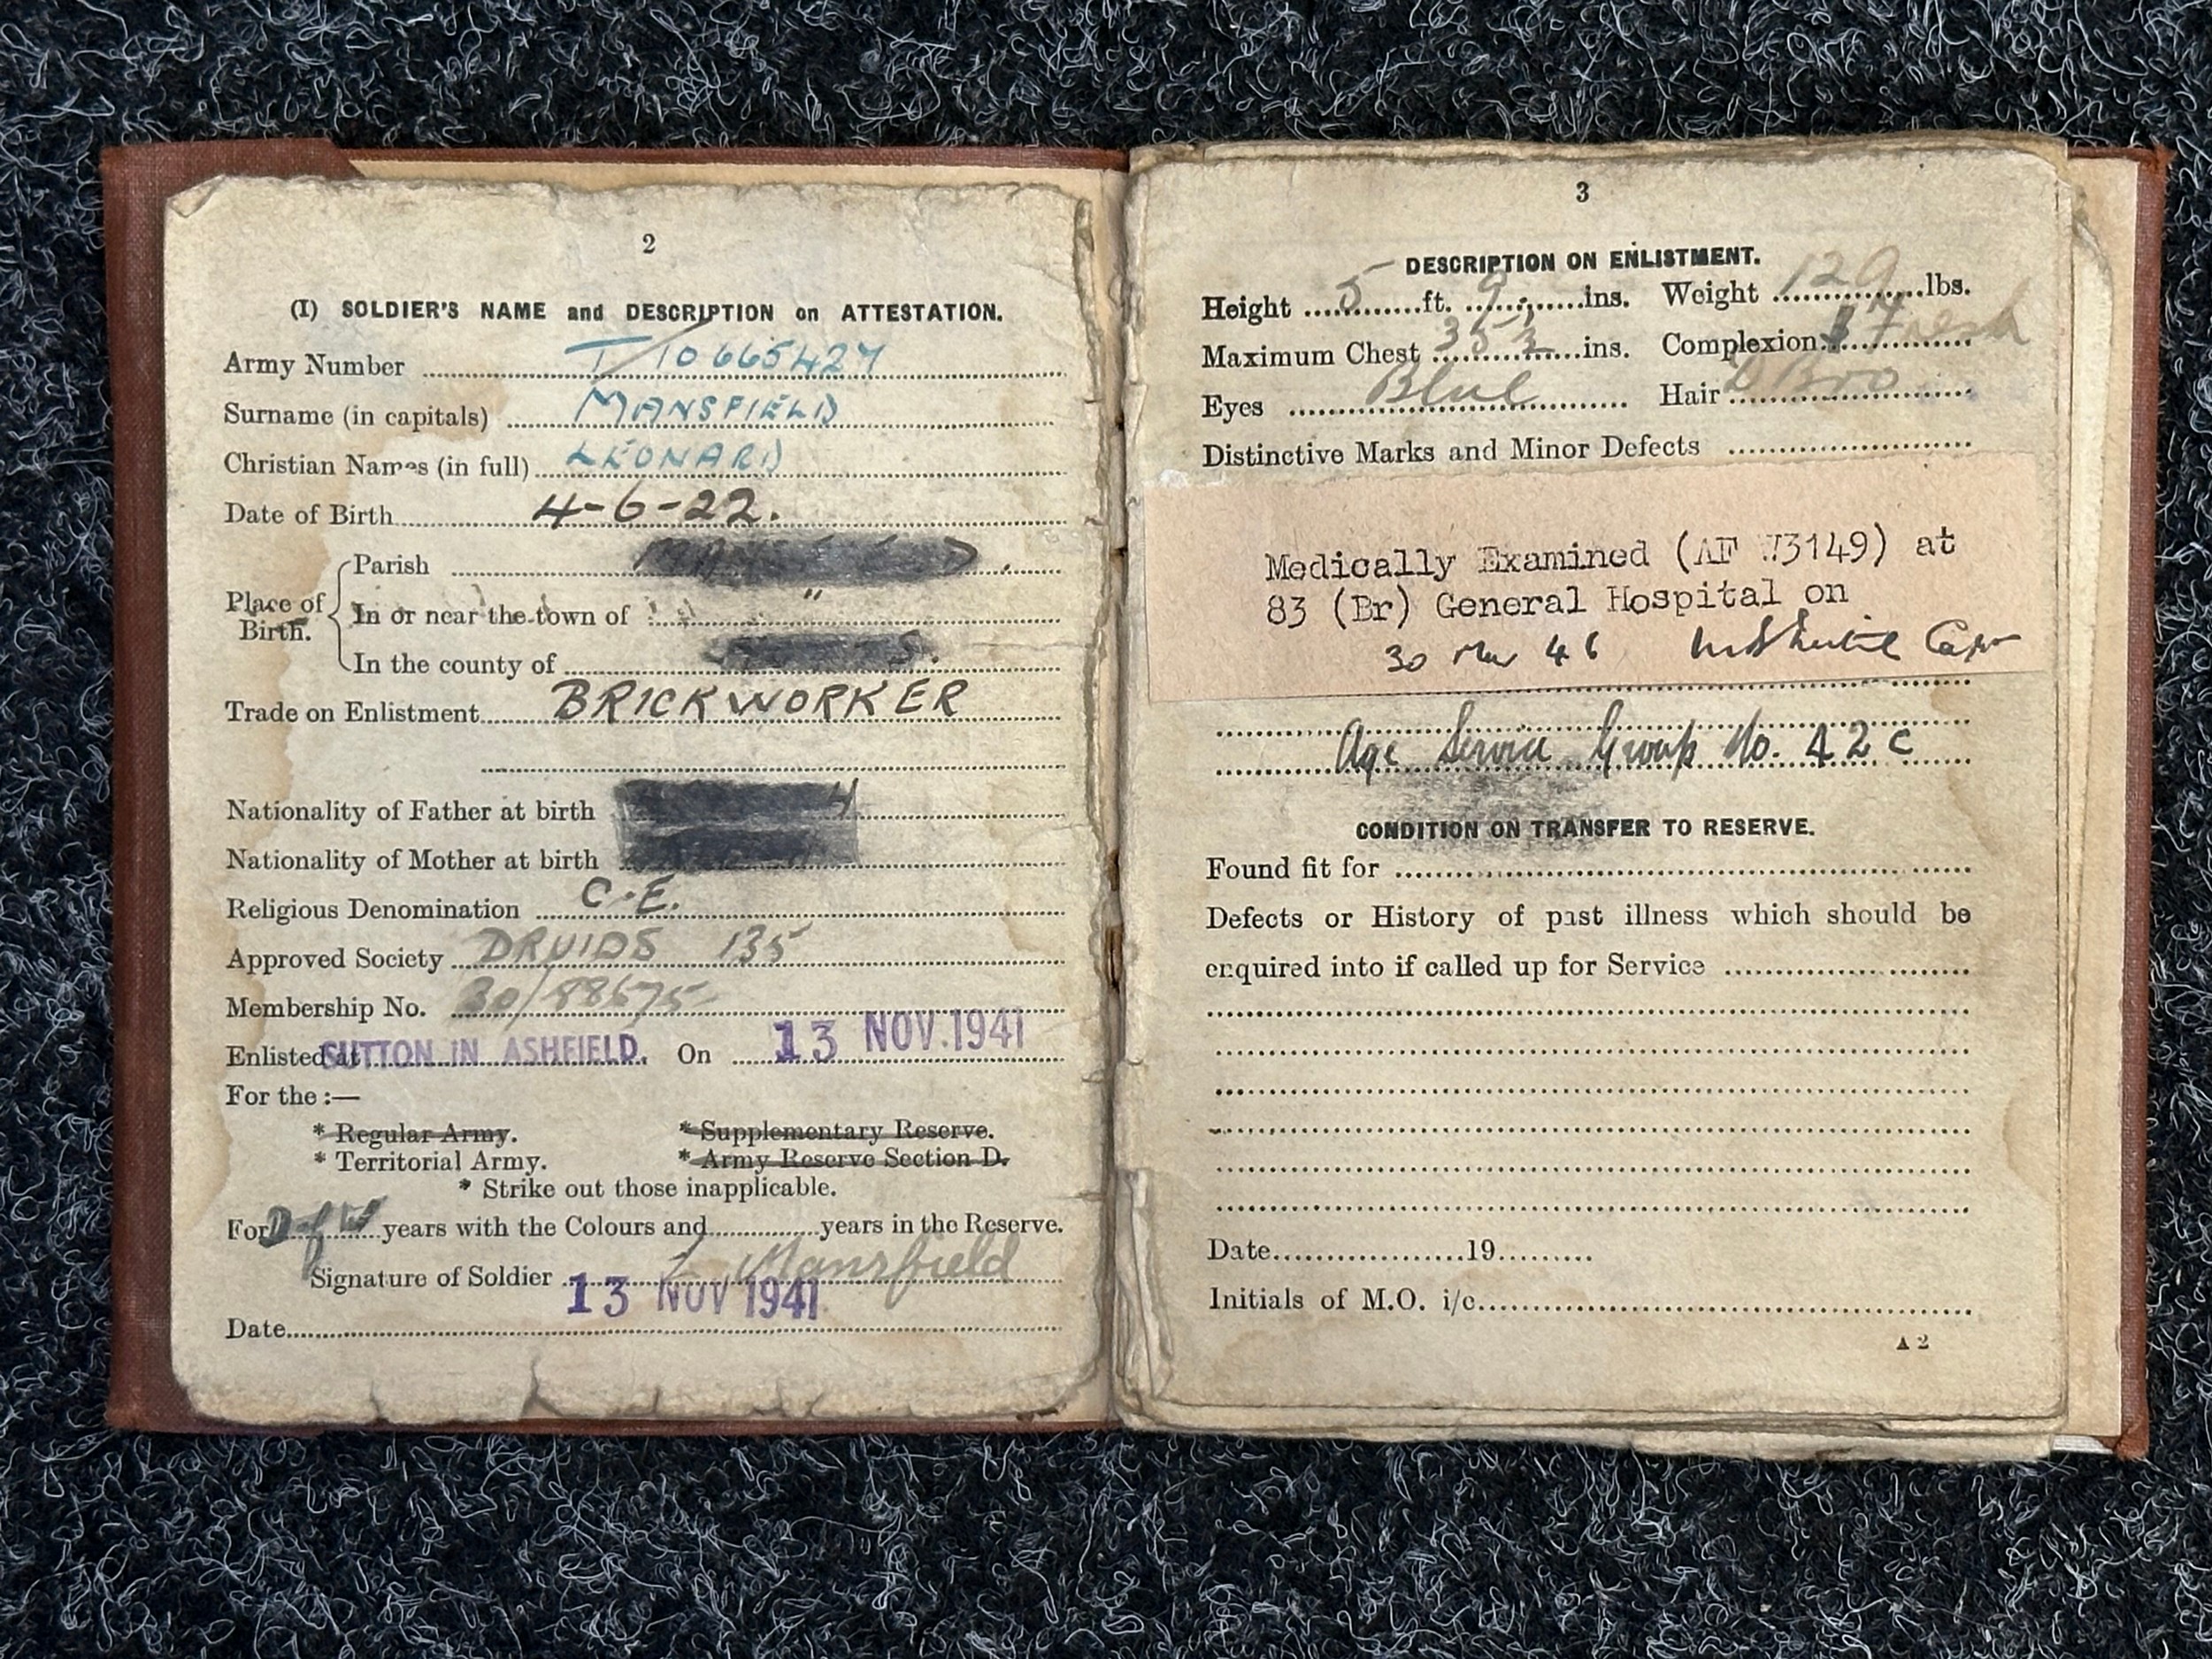 2
(I) SOLDIER'S NAME and DESCRIPTION on ATTESTATION.
Army Number T/10665427
Surname (in capitals) MANSFIELD
Christian Names (in full) LEONARD
Date of Birth 4-6-22.
Place of Birth.
Parish
In or near the town of "
In the county of
Trade on Enlistment BRICKWORKER
Nationality of Father at birth
Nationality of Mother at birth
Religious Denomination C.E.
Approved Society DRUIDS 135
Membership No. 30/88675
Enlisted at SUTTON IN ASHFIELD. On 13 NOV. 1941
For the :—
* Regular Army. * Supplementary Reserve.
* Territorial Army. * Army Reserve Section D.
* Strike out those inapplicable.
For D of W years with the Colours and years in the Reserve.
Signature of Soldier L Mansfield
Date 13 NOV 1941
3
DESCRIPTION ON ENLISTMENT.
Height 5 ft. 9 ins. Weight 129 lbs.
Maximum Chest 35½ ins. Complexion Fresh
Eyes Blue Hair D Bro
Distinctive Marks and Minor Defects
Medically Examined (AF W3149) at
83 (Br) General Hospital on
30 Mar 46 Capt
Age Service Group No. 42 C
CONDITION ON TRANSFER TO RESERVE.
Found fit for
Defects or History of past illness which should be
enquired into if called up for Service
Date 19
Initials of M.O. i/c
A 2